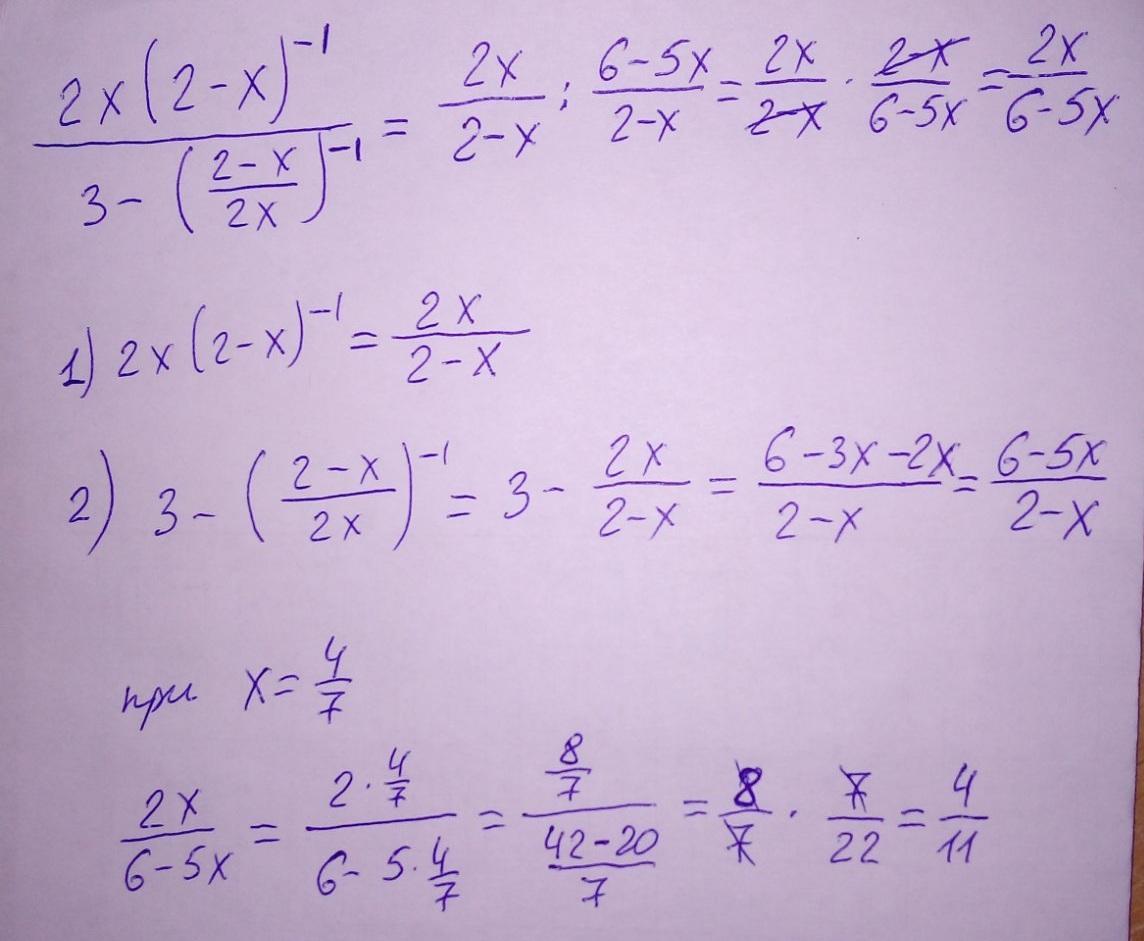 2x(2-x)^{-1} / (3 - ((2-x)/(2x))^{-1}) = 2x/(2-x) : (6-5x)/(2-x) = 2x/(2-x) · (2-x)/(6-5x) = 2x/(6-5x)
1) 2x(2-x)^{-1} = 2x/(2-x)
2) 3 - ((2-x)/(2x))^{-1} = 3 - 2x/(2-x) = (6-3x-2x)/(2-x) = (6-5x)/(2-x)
при x = 4/7
2x/(6-5x) = (2·4/7)/(6-5·4/7) = (8/7)/((42-20)/7) = 8/7 · 7/22 = 4/11